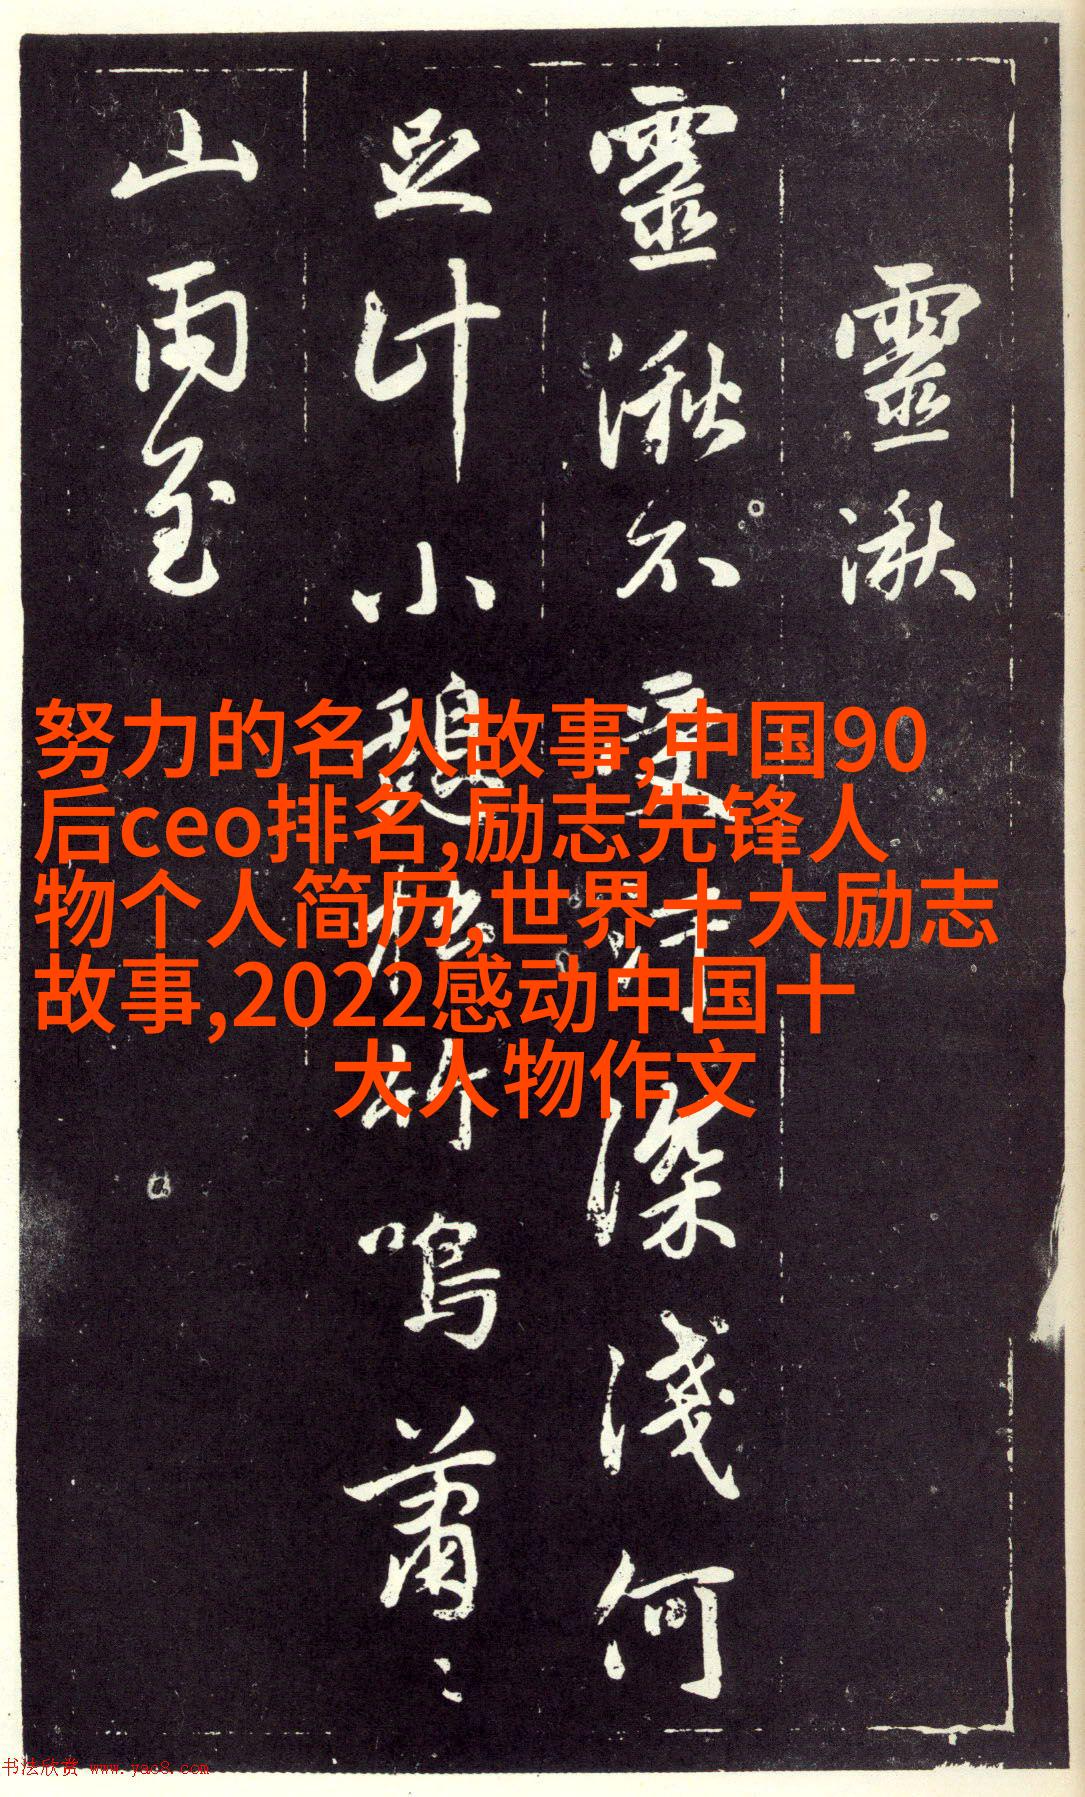 靈湫
靈湫不受汙深淺何
足計小憩枕林鳴蕭〻
山雨至
努力的名人故事,中国90
后ceo排名,励志先锋人
物个人简历,世界十大励志
故事,2022感动中国十
大人物作文
书法欣赏 www.yac8.com